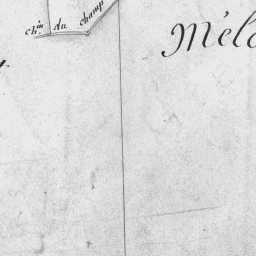 ch.in du champ
Mélo